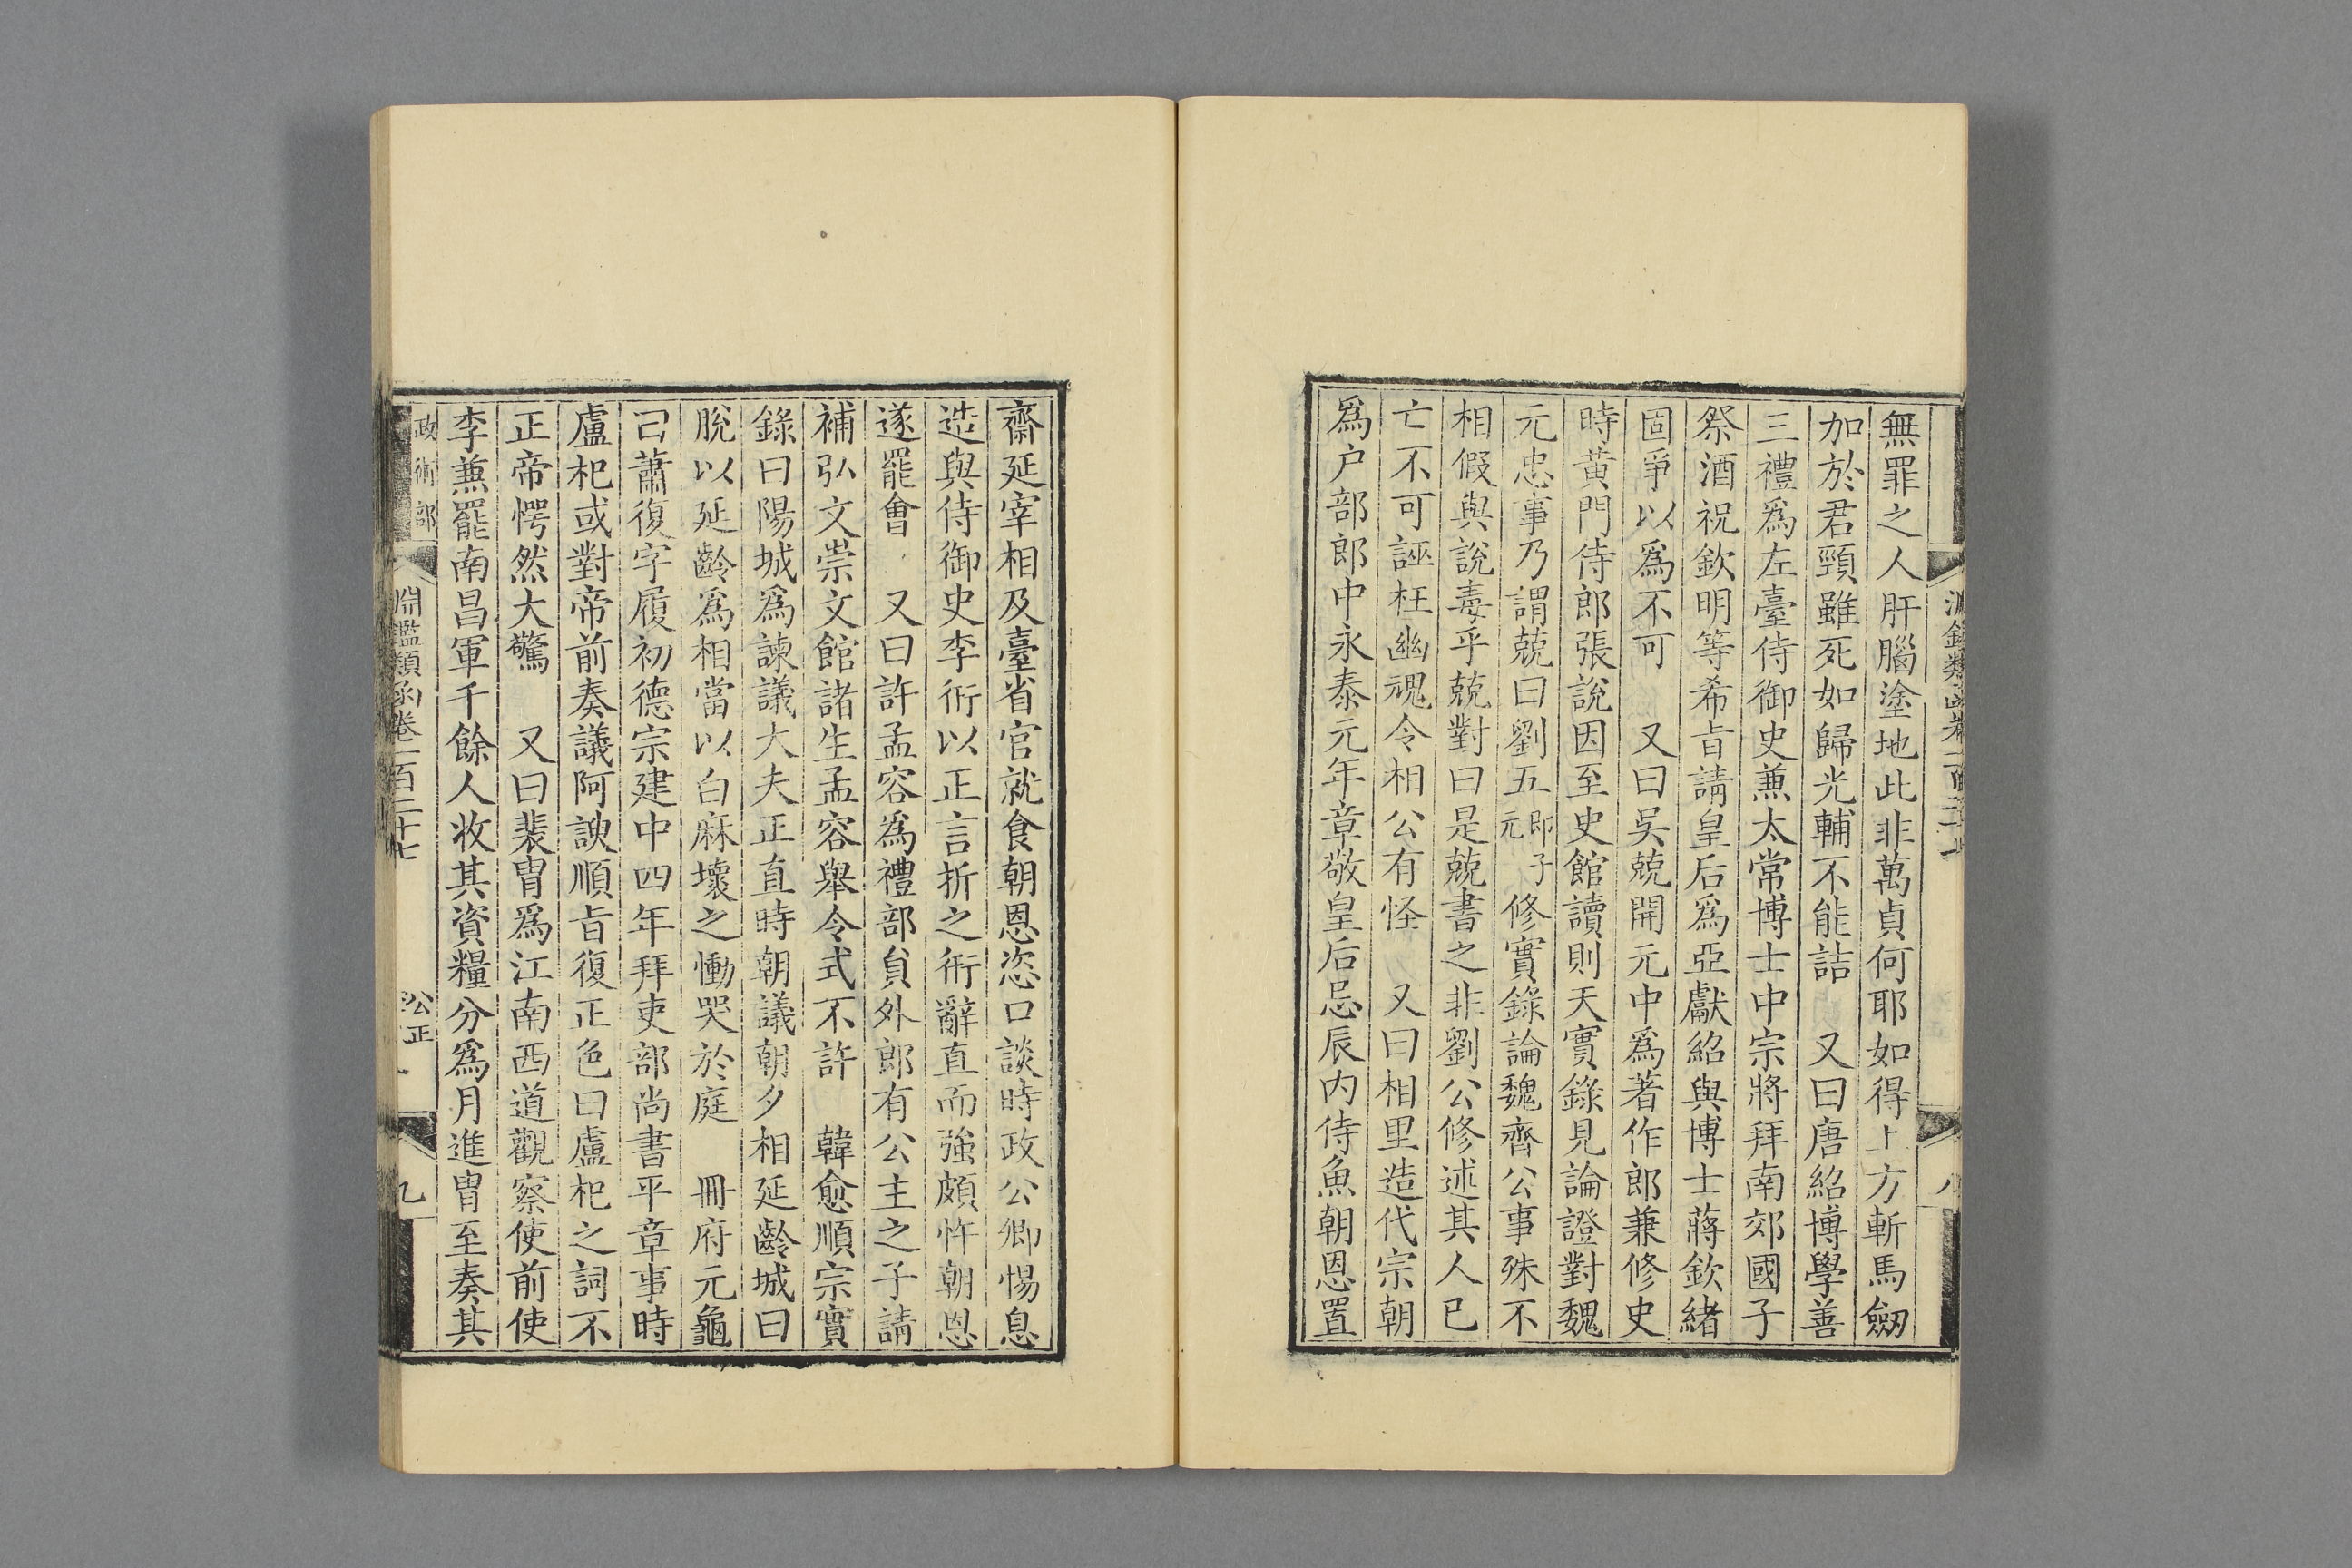 無罪之人肝腦塗地此非萬貞何耶如得上方斬馬劒
加於君頸雖死如歸光輔不能詰　又曰唐紹博學善
三禮爲左臺侍御史兼太常博士中宗將拜南郊國子
祭酒祝欽明等希旨請皇后爲亞獻紹與博士蔣欽緒
固爭以爲不可　又曰吳兢開元中爲著作郎兼修史
時黃門侍郎張說因至史館讀則天實錄見論證對魏
元忠事乃謂兢曰劉五卽子元修實錄論魏齊公事殊不
相假與說毒乎兢對曰是兢書之非劉公修述其人已
亡不可誣枉幽魂令相公有怪　又曰相里造代宗朝
爲户部郎中永泰元年章敬皇后忌辰内侍魚朝恩置
齋延宰相及臺省官就食朝恩恣口談時政公卿惕息
造與侍御史李衎以正言折之衎辭直而強頗忤朝恩
遂罷會　又曰許孟容爲禮部貟外郎有公主之子請
補弘文崇文館諸生孟容舉令式不許　韓愈順宗實
錄曰陽城爲諫議大夫正直時朝議朝夕相延齡城曰
脫以延齡爲相當以白麻壞之慟哭於庭　冊府元龜
曰蕭復字履初德宗建中四年拜吏部尚書平章事時
盧杞或對帝前奏議阿諛順旨復正色曰盧杞之詞不
正帝愕然大驚　又曰裴冑爲江南西道觀察使前使
李兼罷南昌軍千餘人收其資糧分爲月進冑至奏其
政術部
淵鑑類函卷一百二十七
公正
九